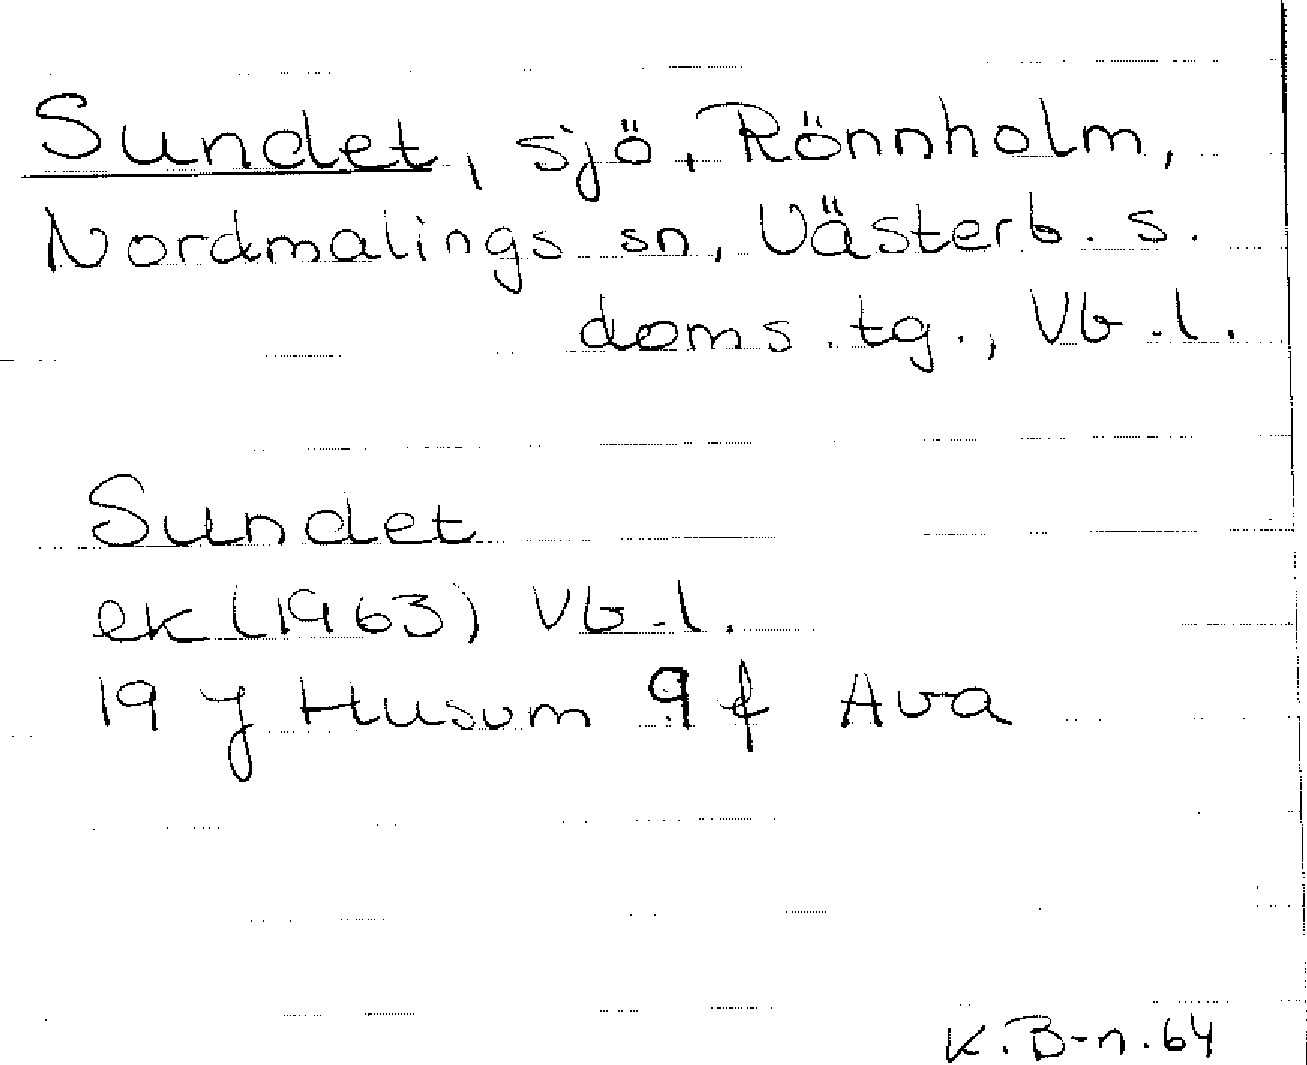 Sundet, sjö, Rönnholm,
Nordmalings sn, Västerb. s.
doms. tg., Vb. l.
Sundet
ek (1963) Vb. l.
19 J Husum 9 f Ava
K. B-n. 64